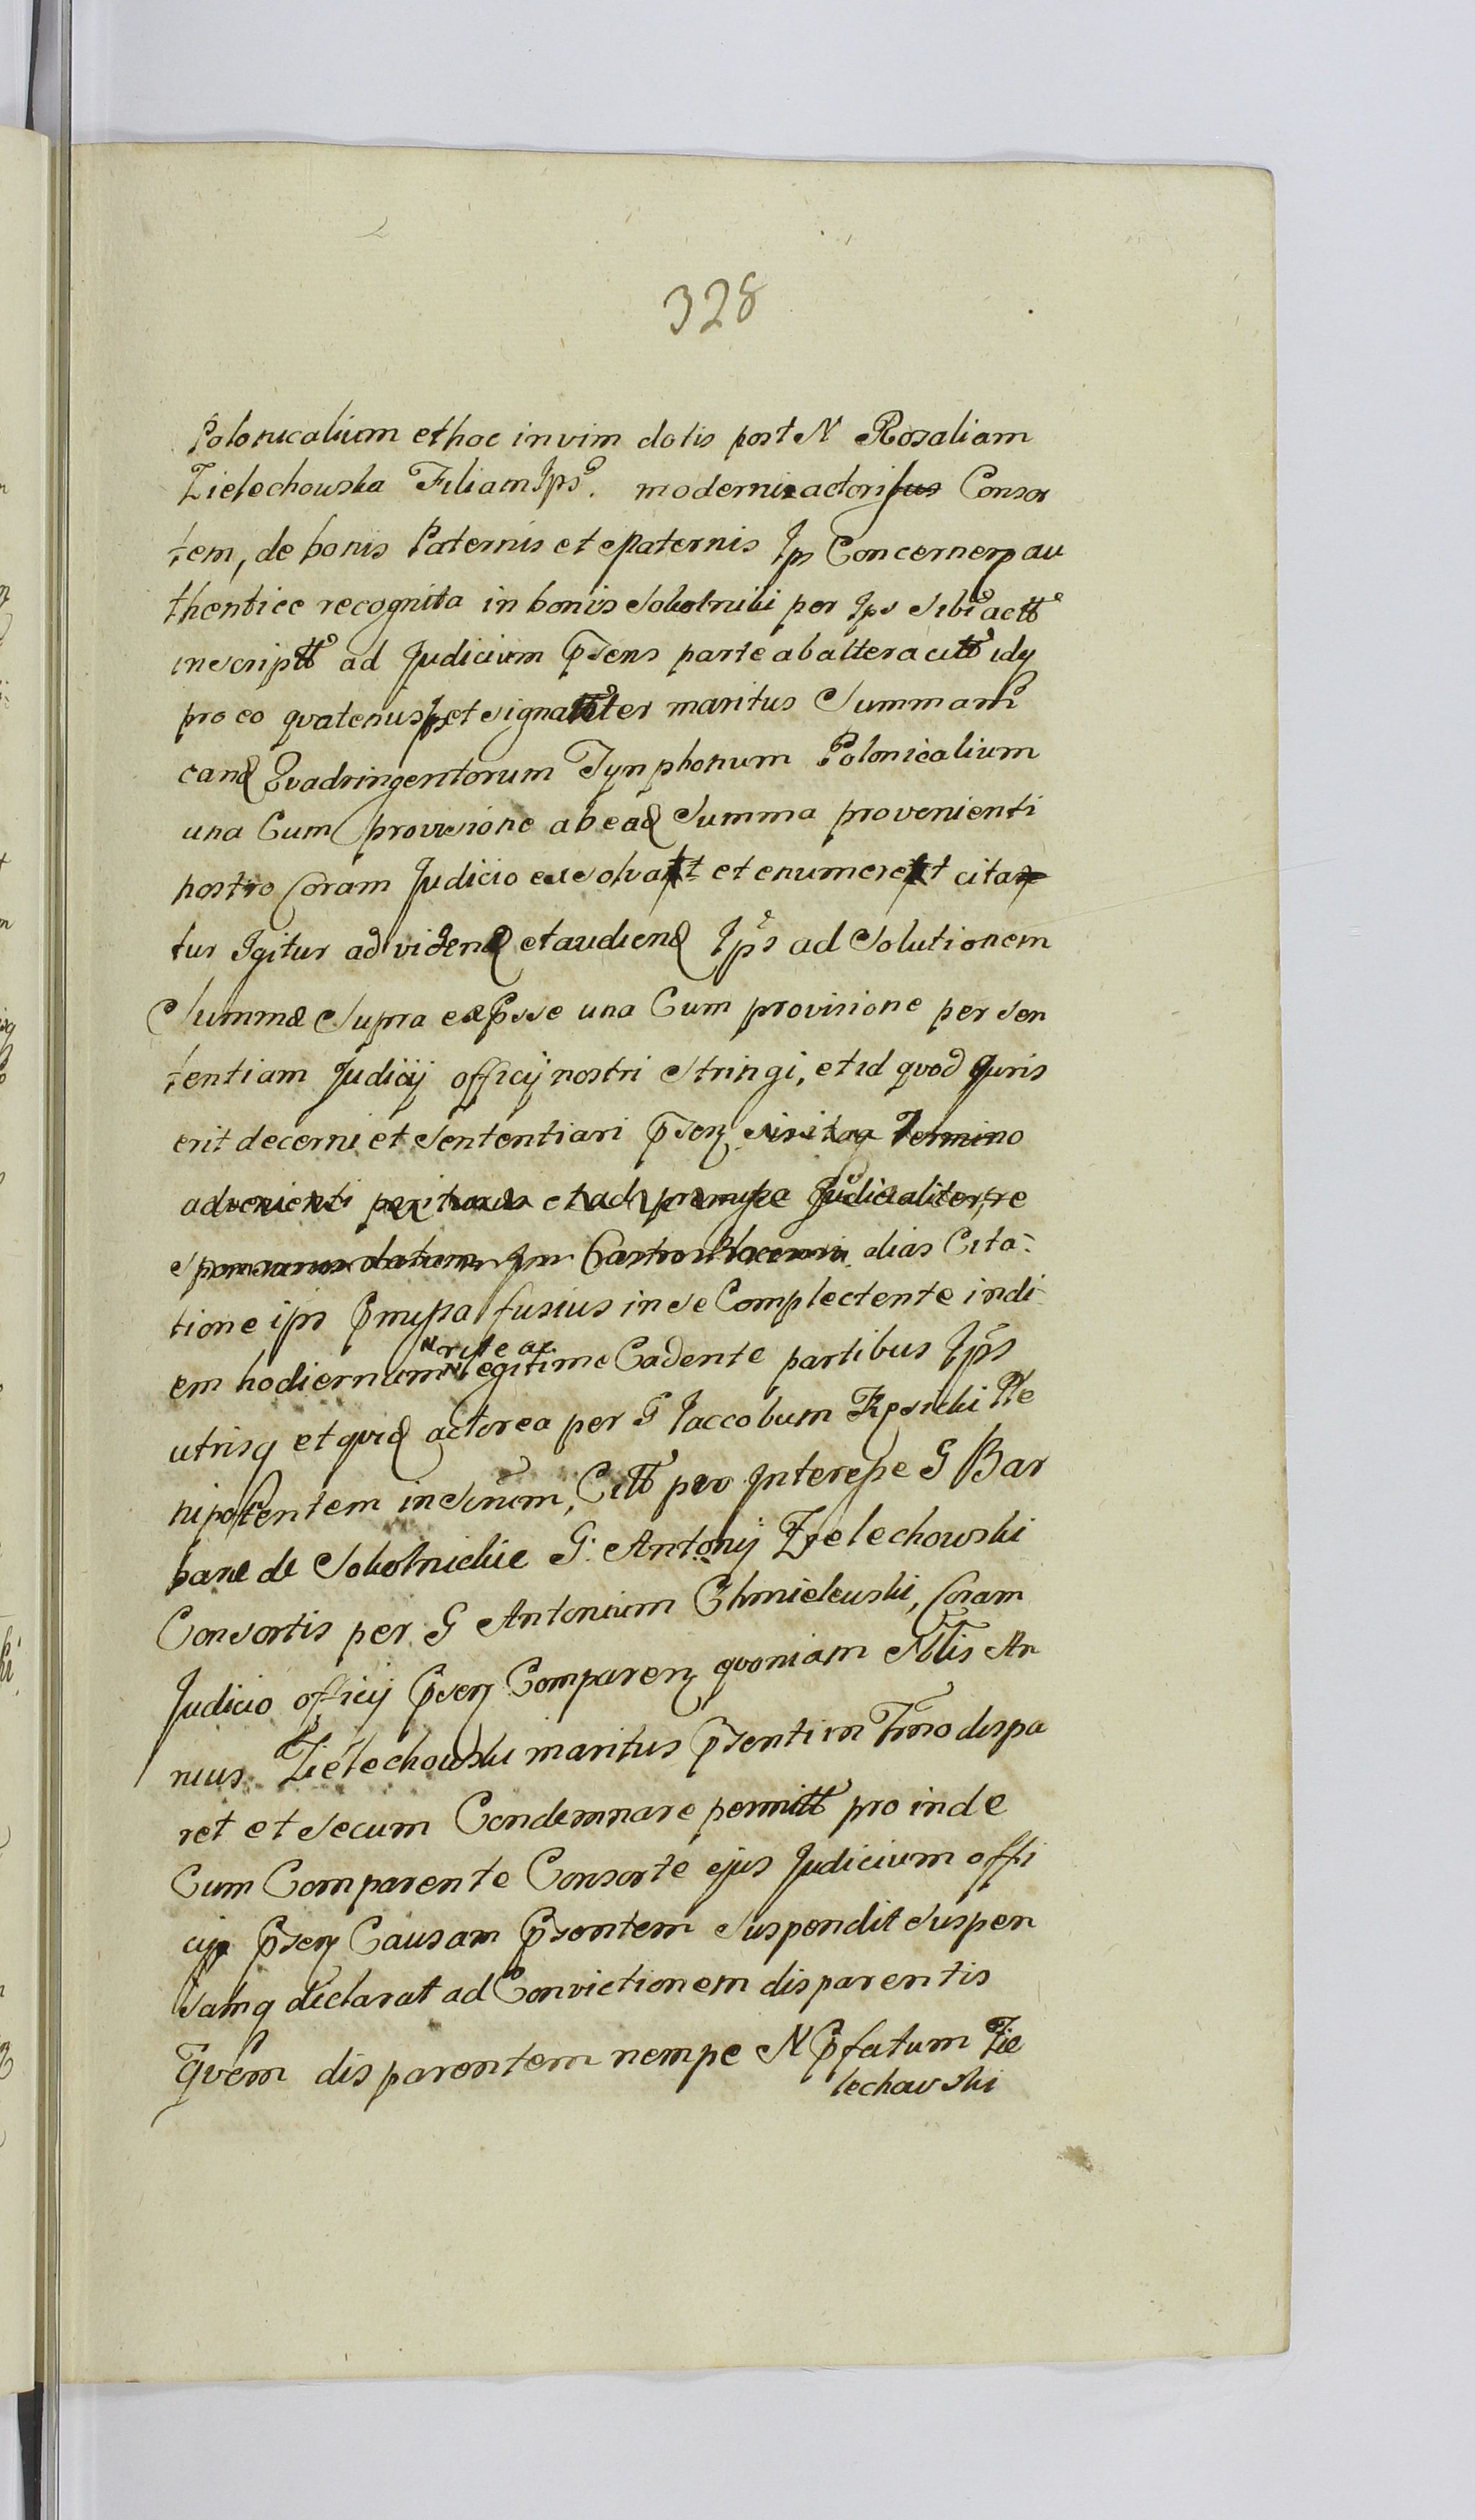 328
Polonicalium et hoc in vim dotis post N Rosaliam
Zielechowska Filiam Ips. moderni actori Consor
tem, de bonis Paternis et Maternis Ips Concernen au
thentice recognita in bonis Sokolniki per Ips Sibi actt
inscriptt ad Judicium Psens parte ab altera citt idq
pro eo qvatenus Ips et signatter maritus Summam
eand Qvadringentorum Tynphonum Polonicalium
una Cum provisione ab ead Summa provenienti
nostro Coram Judicio exsolvat et enumeret cita
tur Igitur ad videnд et audiend Ips ad Solutionem
Summæ Supra exPsse una Cum provisione per Sen
tentiam Judicij officij nostri Stringi, et id qvod Juris
erit decerni et Sententiari Psen
dias Cita-
tione ips Pmissa fusius in se Complectente indi
em hodiernum rite ac legitime Cadente partibus Ips
utrisq et qvid actorea per G Jaccobum Rpsicki Ple
nipotentem in Suum, Citt pro Interesse G Bar
bare de Sokolnickie G. Antonij Zielechowski
Consortis per G Antonium Chmielewski, Coram
Judicio officij Psen Comparen qvoniam Nlis An
nius Zielechowski maritus Psenti in Tmno dispa
ret et Secum Condemnare permitt pro inde
Cum Comparente Consorte ejus Judicium offi
cij Psen Causam Psentem Suspendit Suspen
Samq declarat ad Convictionem disparentis
Qvem disparentem nempe N Pfatum Zie
lechowski